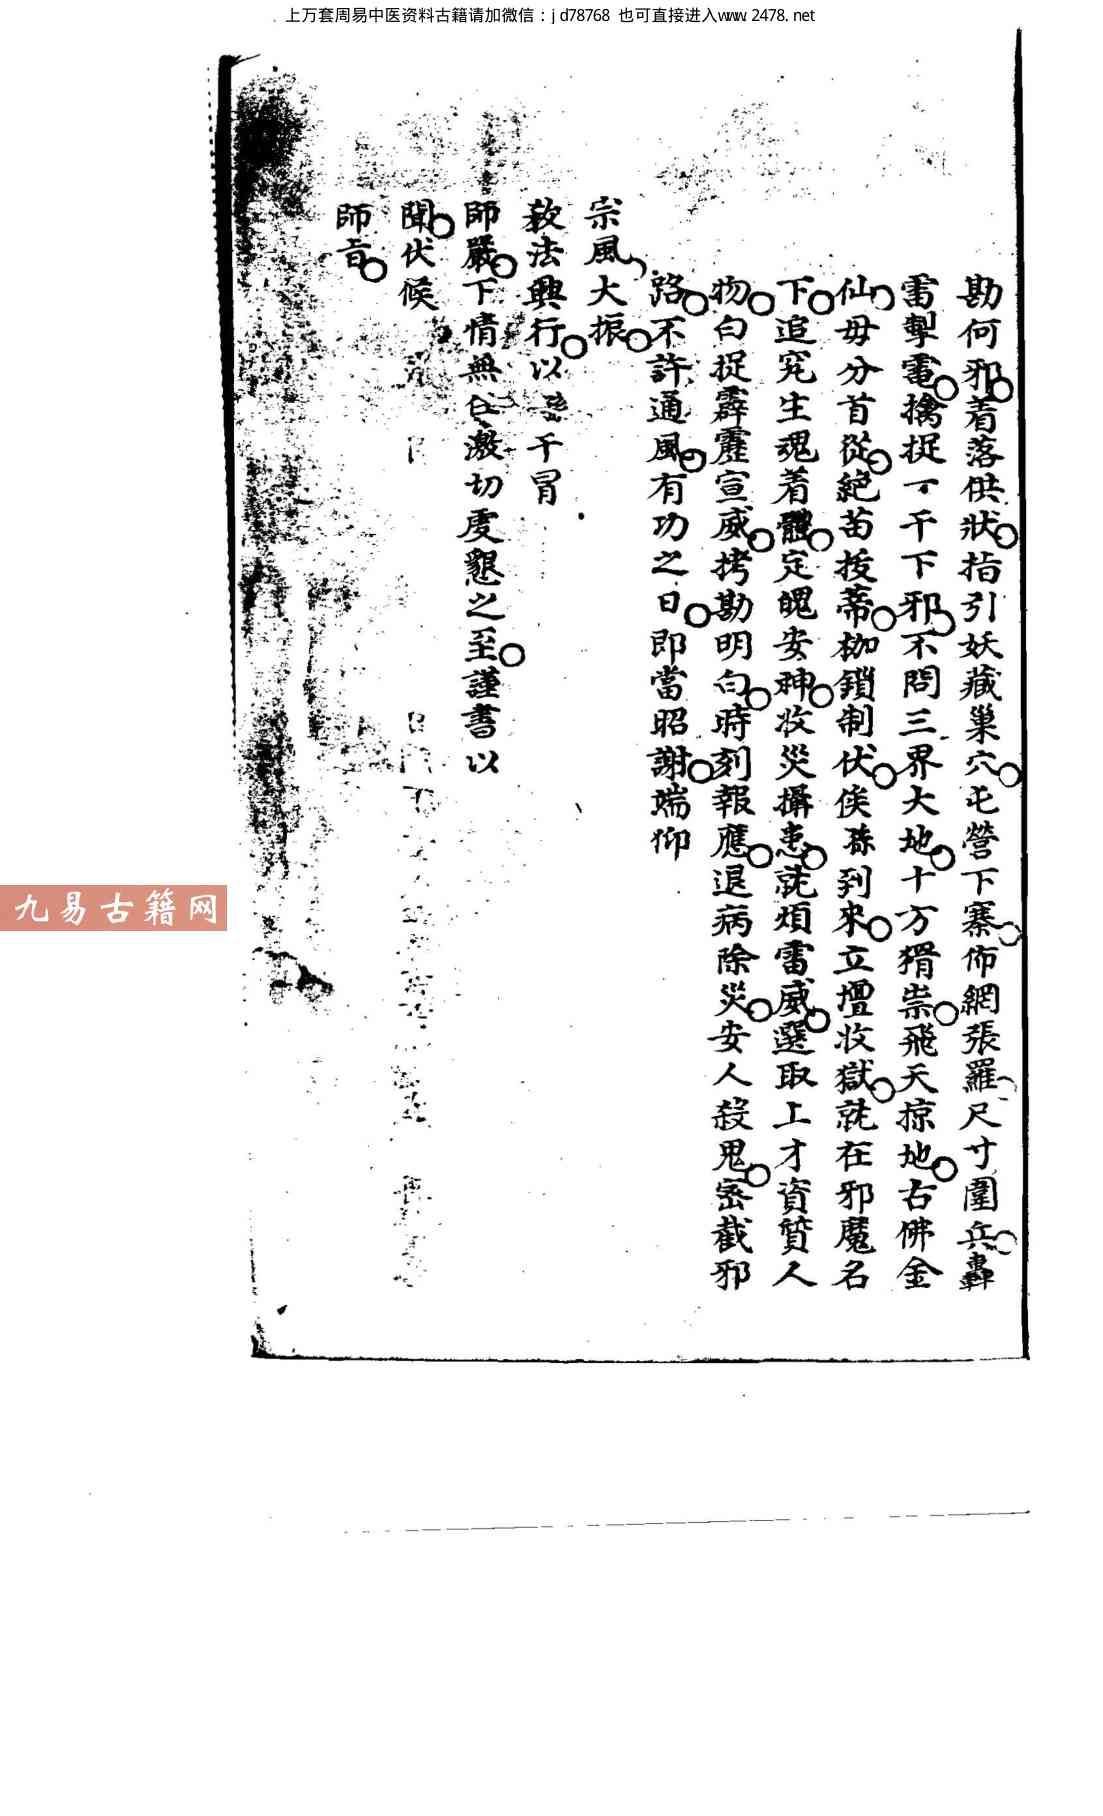 上万套周易中医资料古籍请加微信：jd78768 也可直接进入www.2478.net
勘何邪着落供狀指引妖藏巢穴屯營下寨佈網張羅尺寸圍兵轟
雷掣電擒捉丁千下邪不問三界大地十方猾祟飛天掠地古佛金
仙毋分首從絕苗拔蒂枷鎖制伏俟孫到來立壇收獄就在邪魔名
下追究生魂着體定魄安神收災攝患就煩雷威選取上才資質人
物白捉霹靂宣威拷勘明白時刻報應退病除災安人殺鬼密截邪
路不許通風有功之日即當昭謝端仰
宗風大振
教法興行以 干冒
師嚴下情無任激切虔懇之至謹書以
聞伏候
師旨
九易古籍网